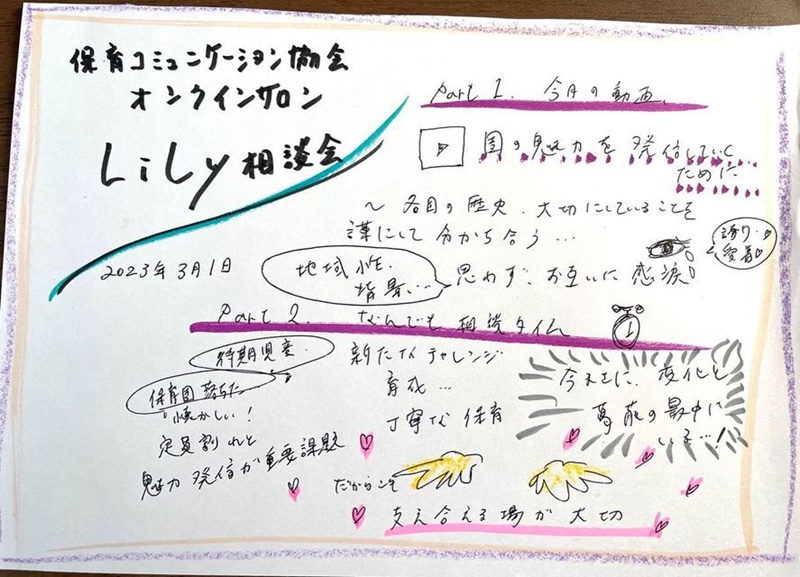 保育コミュニケーション協会
オンラインサロン
Lily 相談会
2023年3月1日
Part 1. 今月の動画
園の魅力を発信していく
ために
〜 各自の歴史、大切にしていることを
議にして分かち合う…
地域性
背景…
思わず、お互いに感涙
誇り
愛着
Part 2. なんでも相談タイム
待機児童
保育園落ちた
懐かしい!
定員割れと
魅力発信が重要課題
新たなチャレンジ
育成…
丁寧な保育
今まさに、変化と
葛藤の最中に
いる…!
だからこそ
支え合える場が大切